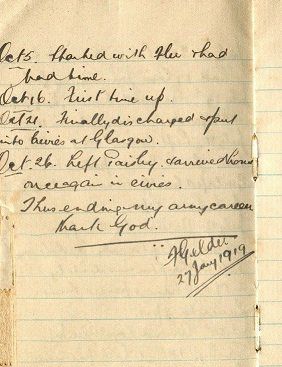 Oct 5. Started with Flu & had
bad time.
Oct 16. First time up.
Oct 21. Finally discharged & put
into civies at Glasgow.
Oct. 26. Left Paisley, & arrived home
once again in civies.
Thus ending my army career
thank God.
Gelder
27 Jany 1919